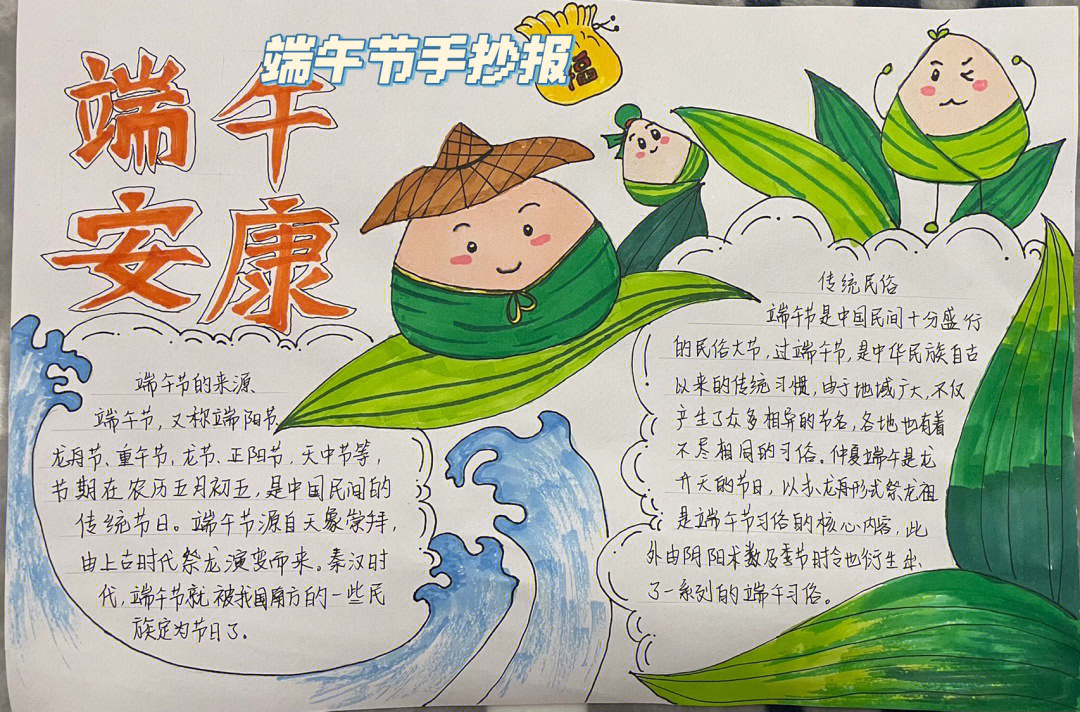 端午节手抄报
福
端午
安康
端午节的来源
端午节，又称端阳节、
龙舟节、重午节，龙节、正阳节，天中节等，
节期在农历五月初五，是中国民间的
传统节日。端午节源自天象崇拜，
由上古时代祭龙演变而来。秦汉时
代，端午节就被我国南方的一些民
族定为节日了。
传统民俗
端午节是中国民间十分盛行
的民俗大节，过端午节，是中华民族自古
以来的传统习惯，由于地域广大，不仅
产生了众多相异的节名，各地也有着
不尽相同的习俗。仲夏端午是龙
升天的节日，以扒龙舟形式祭龙祖
是端午节习俗的核心内容，此
外由阴阳术数及季节时令也衍生出
了一系列的端午习俗。